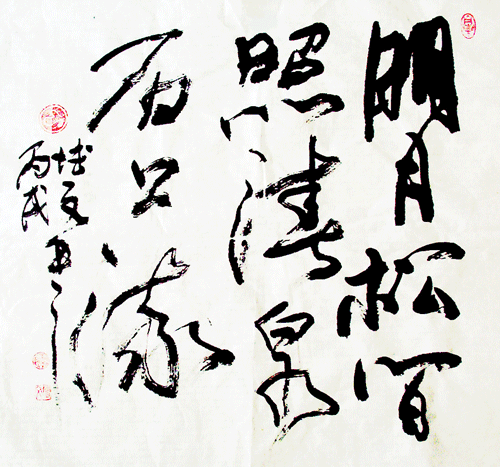 明月松間
照清泉
石上流
丙戌